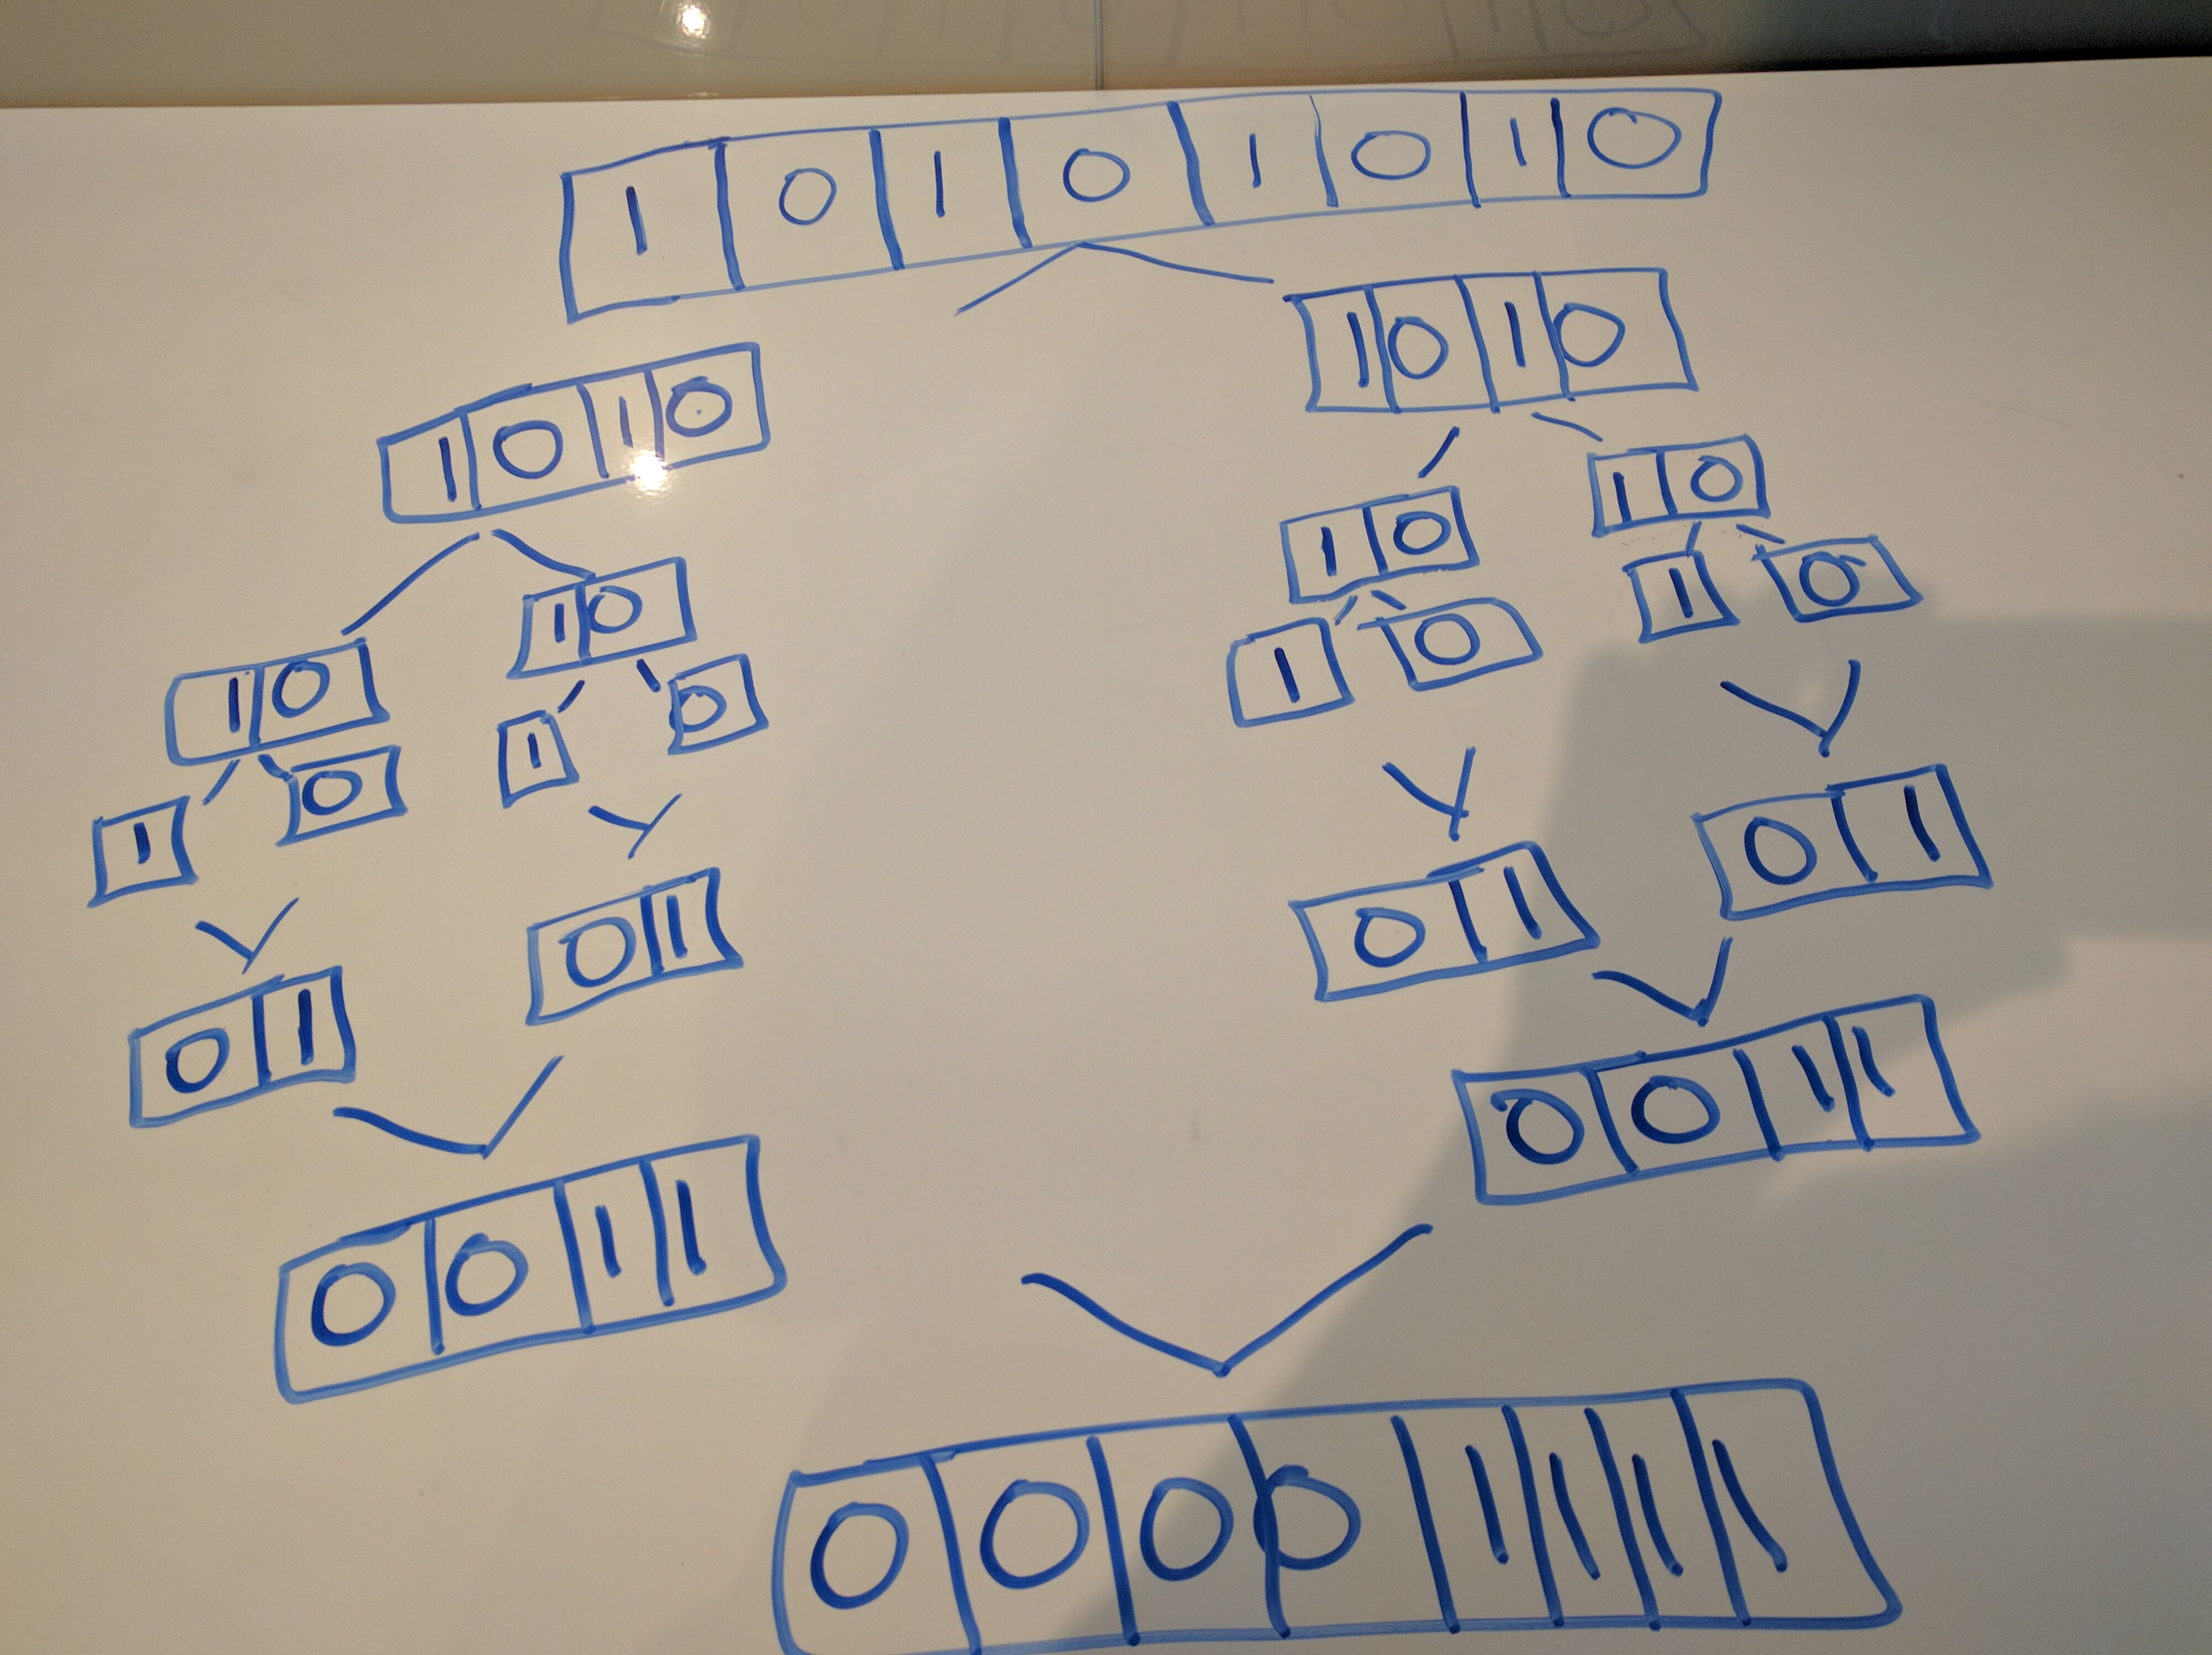 1 0 1 0 1 0 1 0
1 0 1 0
1 0 1 0
1 0
1 0
1 0
1 0
1 0
1 0
1 0
1 0
0 1
0 1
0 1
0 1
0 0 1 1
0 0 1 1
0 0 0 0 1 1 1 1